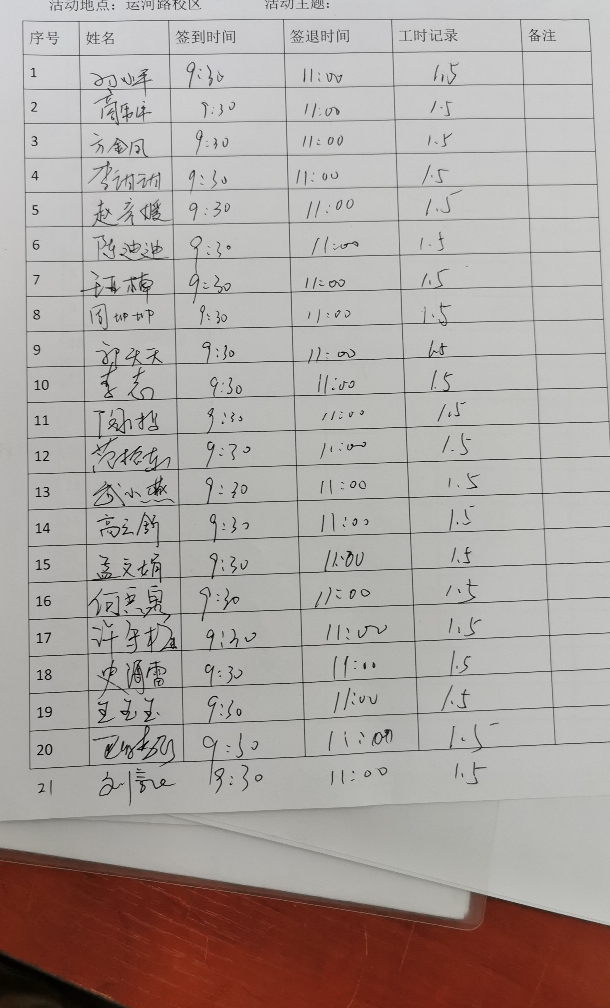 活动地点：运河路校区 活动主题：
序号 姓名 签到时间 签退时间 工时记录 备注
1 9:30 11:00 1.5
2 9:30 11:00 1.5
3 方金凤 9:30 11:00 1.5
4 李玥玥 9:30 11:00 1.5
5 赵彦媛 9:30 11:00 1.5
6 陈迪迪 9:30 11:00 1.5
7 9:30 11:00 1.5
8 周坤坤 9:30 11:00 1.5
9 郭天天 9:30 11:00 1.5
10 李志 9:30 11:00 1.5
11 9:30 11:00 1.5
12 9:30 11:00 1.5
13 武小燕 9:30 11:00 1.5
14 高立舒 9:30 11:00 1.5
15 孟文娟 9:30 11:00 1.5
16 9:30 11:00 1.5
17 9:30 11:00 1.5
18 9:30 11:00 1.5
19 王玉玉 9:30 11:00 1.5
20 9:30 11:00 1.5
21 9:30 11:00 1.5